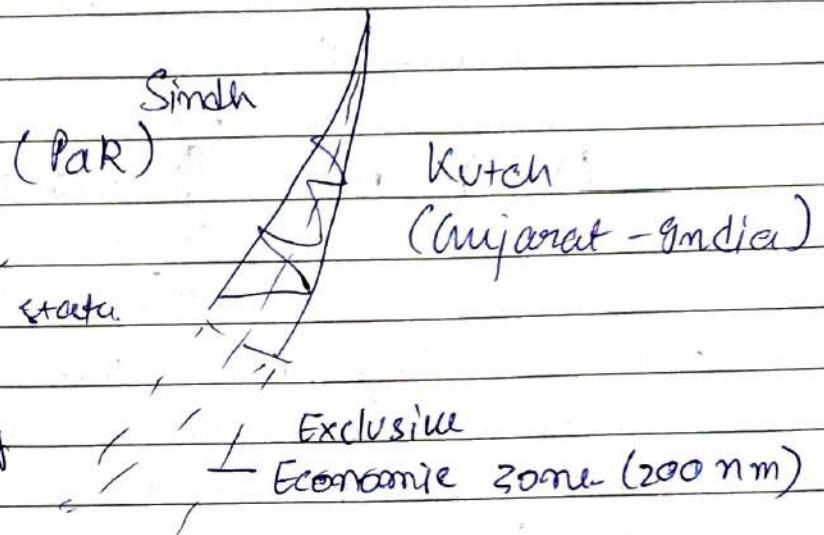 Sindh
(PaK)
Kutch
(Gujarat - India)
state
Exclusive
Economic Zone (200 nm)